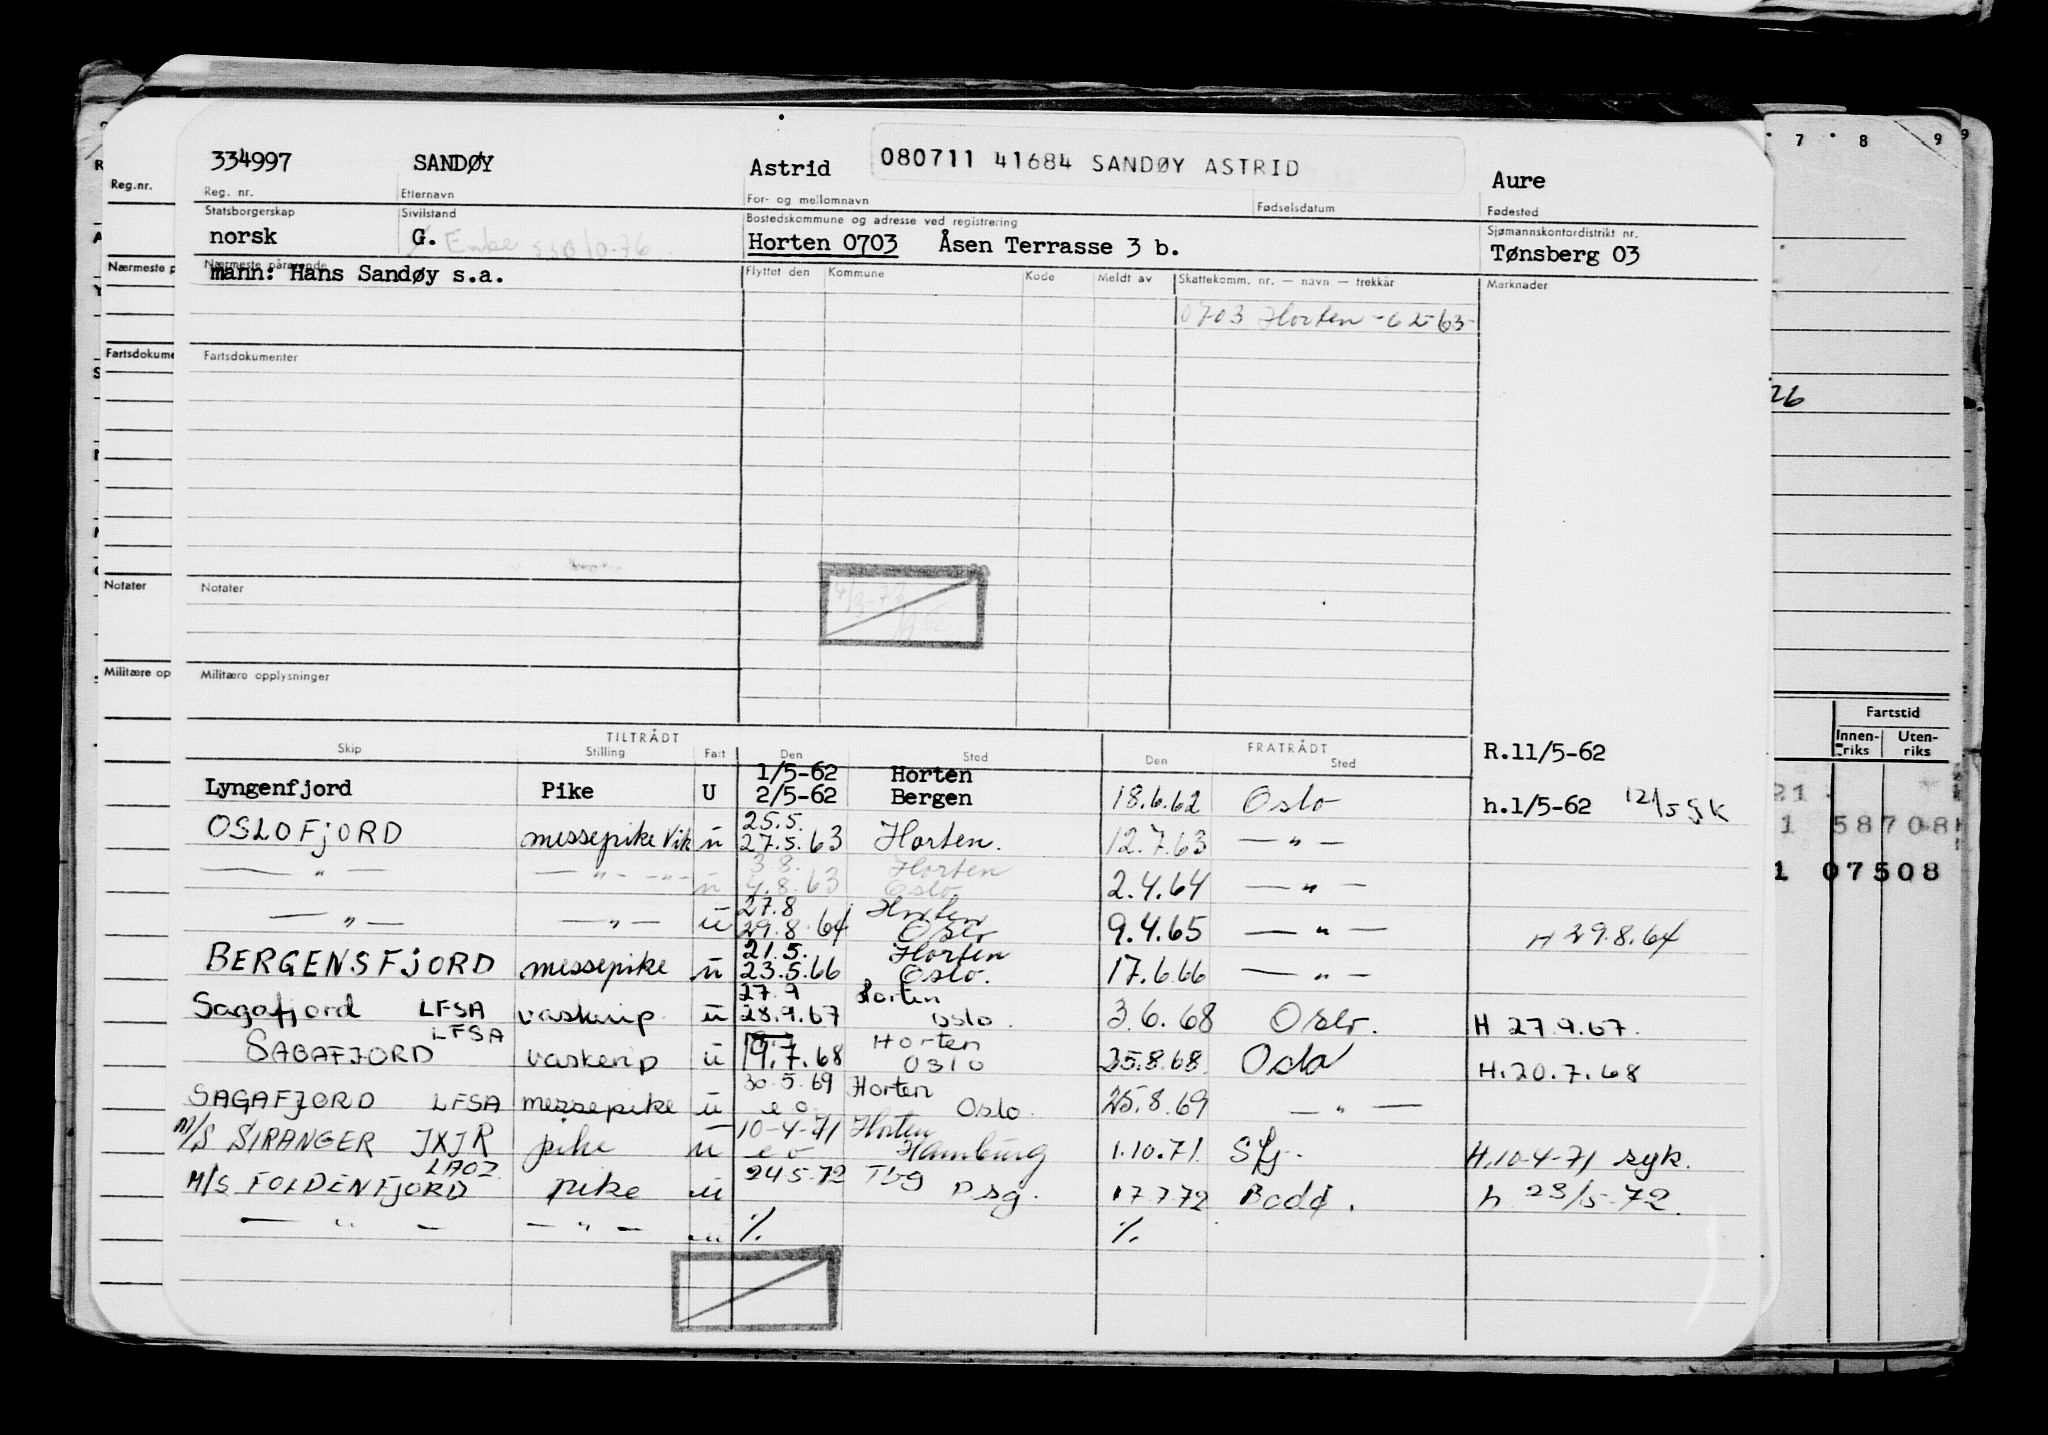 334997 SANDØY Astrid 080711 41684 SANDØY ASTRID Aure
Reg. nr. Etternavn For- og mellomnavn Fødselsdatum Fødested
Statsborgerskap Sivilstand Bostedskommune og adresse ved registrering Sjømannskontordistrikt nr.
norsk G. Enke Horten 0703 Åsen Terrasse 3 b. Tønsberg 03
Nærmeste pårørende Flyttet den Kommune Kode Meldt av Skattekomm. nr. — navn — trekkår Merknader
mann: Hans Sandøy s.a.
0703 Horten - 62-63-
Fartsdokumenter
Notater
Militære opplysninger
TILTRÅDT FRATRÅDT
Skip Stilling Fart Den Sted Den Sted
R.11/5-62
1/5-62 Horten
Lyngenfjord Pike U 2/5-62 Bergen 18.6.62 Oslo h.1/5-62 12/5 gk
25.5.
OSLOFJORD messepike Vik u 27.5.63 Horten. 12.7.63 — " —
3.8. Horten
— " — — " — - " - u 4.8.63 Oslo 2.4.64 — " —
27.8 Horten
— " — — " — u 29.8.64 Oslo 9.4.65 — " — H 29.8.64
21.5. Horten
BERGENSFJORD messepike u 23.5.66 Oslo. 17.6.66 — " —
27.9 Horten
Sagafjord LFSA vaskerip u 28.9.67 oslo. 3.6.68 Oslo. H 27.9.67.
Horten
SAGAFJORD LFSA vaskerip u 19.7.68 Oslo 25.8.68 Oslo H.20.7.68
30.5.69 Horten
SAGAFJORD LFSA messepike u e o Oslo. 25.8.69 — " —
10-4-71 Horten
M/S SIRANGER JXJR pike u e o Hamburg 1.10.71 Sfj. H.10-4-71 syk.
24.5.72 Tbg
M/S FOLDENFJORD LAOZ pike u Psg. 17.7.72 Bodø. h 23/5-72.
— " — — " — u %. %.
Reg.nr.
Nærmeste p
Fartsdokume
Notater
Militære op
7 8 9
26
Fartstid
Innen-riks Uten-riks
21
1 58708
1 07508